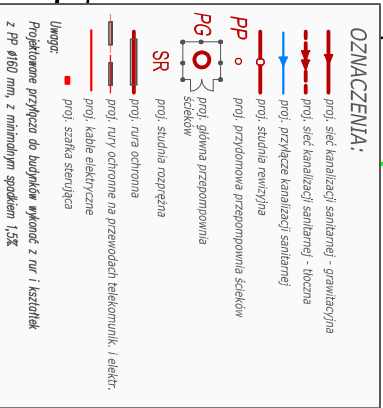 OZNACZENIA:
proj. sieć kanalizacji sanitarnej - grawitacyjna
proj. sieć kanalizacji sanitarnej - tłoczna
proj. przyłącze kanalizacji sanitarnej
proj. studnia rewizyjna
PP proj. przydomowa przepompownia ścieków
PG proj. główna przepompownia
ścieków
SR proj. studnia rozprężna
proj. rura ochronna
proj. rury ochronne na przewodach telekomunik. i elektr.
proj. kable elektryczne
proj. szafka sterująca
Uwaga:
Projektowane przyłącza do budynków wykonać z rur i kształtek
z PP Ø160 mm, z minimalnym spadkiem 1,5%